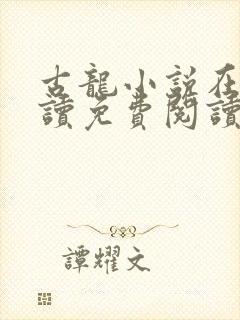 古龍小說在
讀免費閱讀
譚耀文